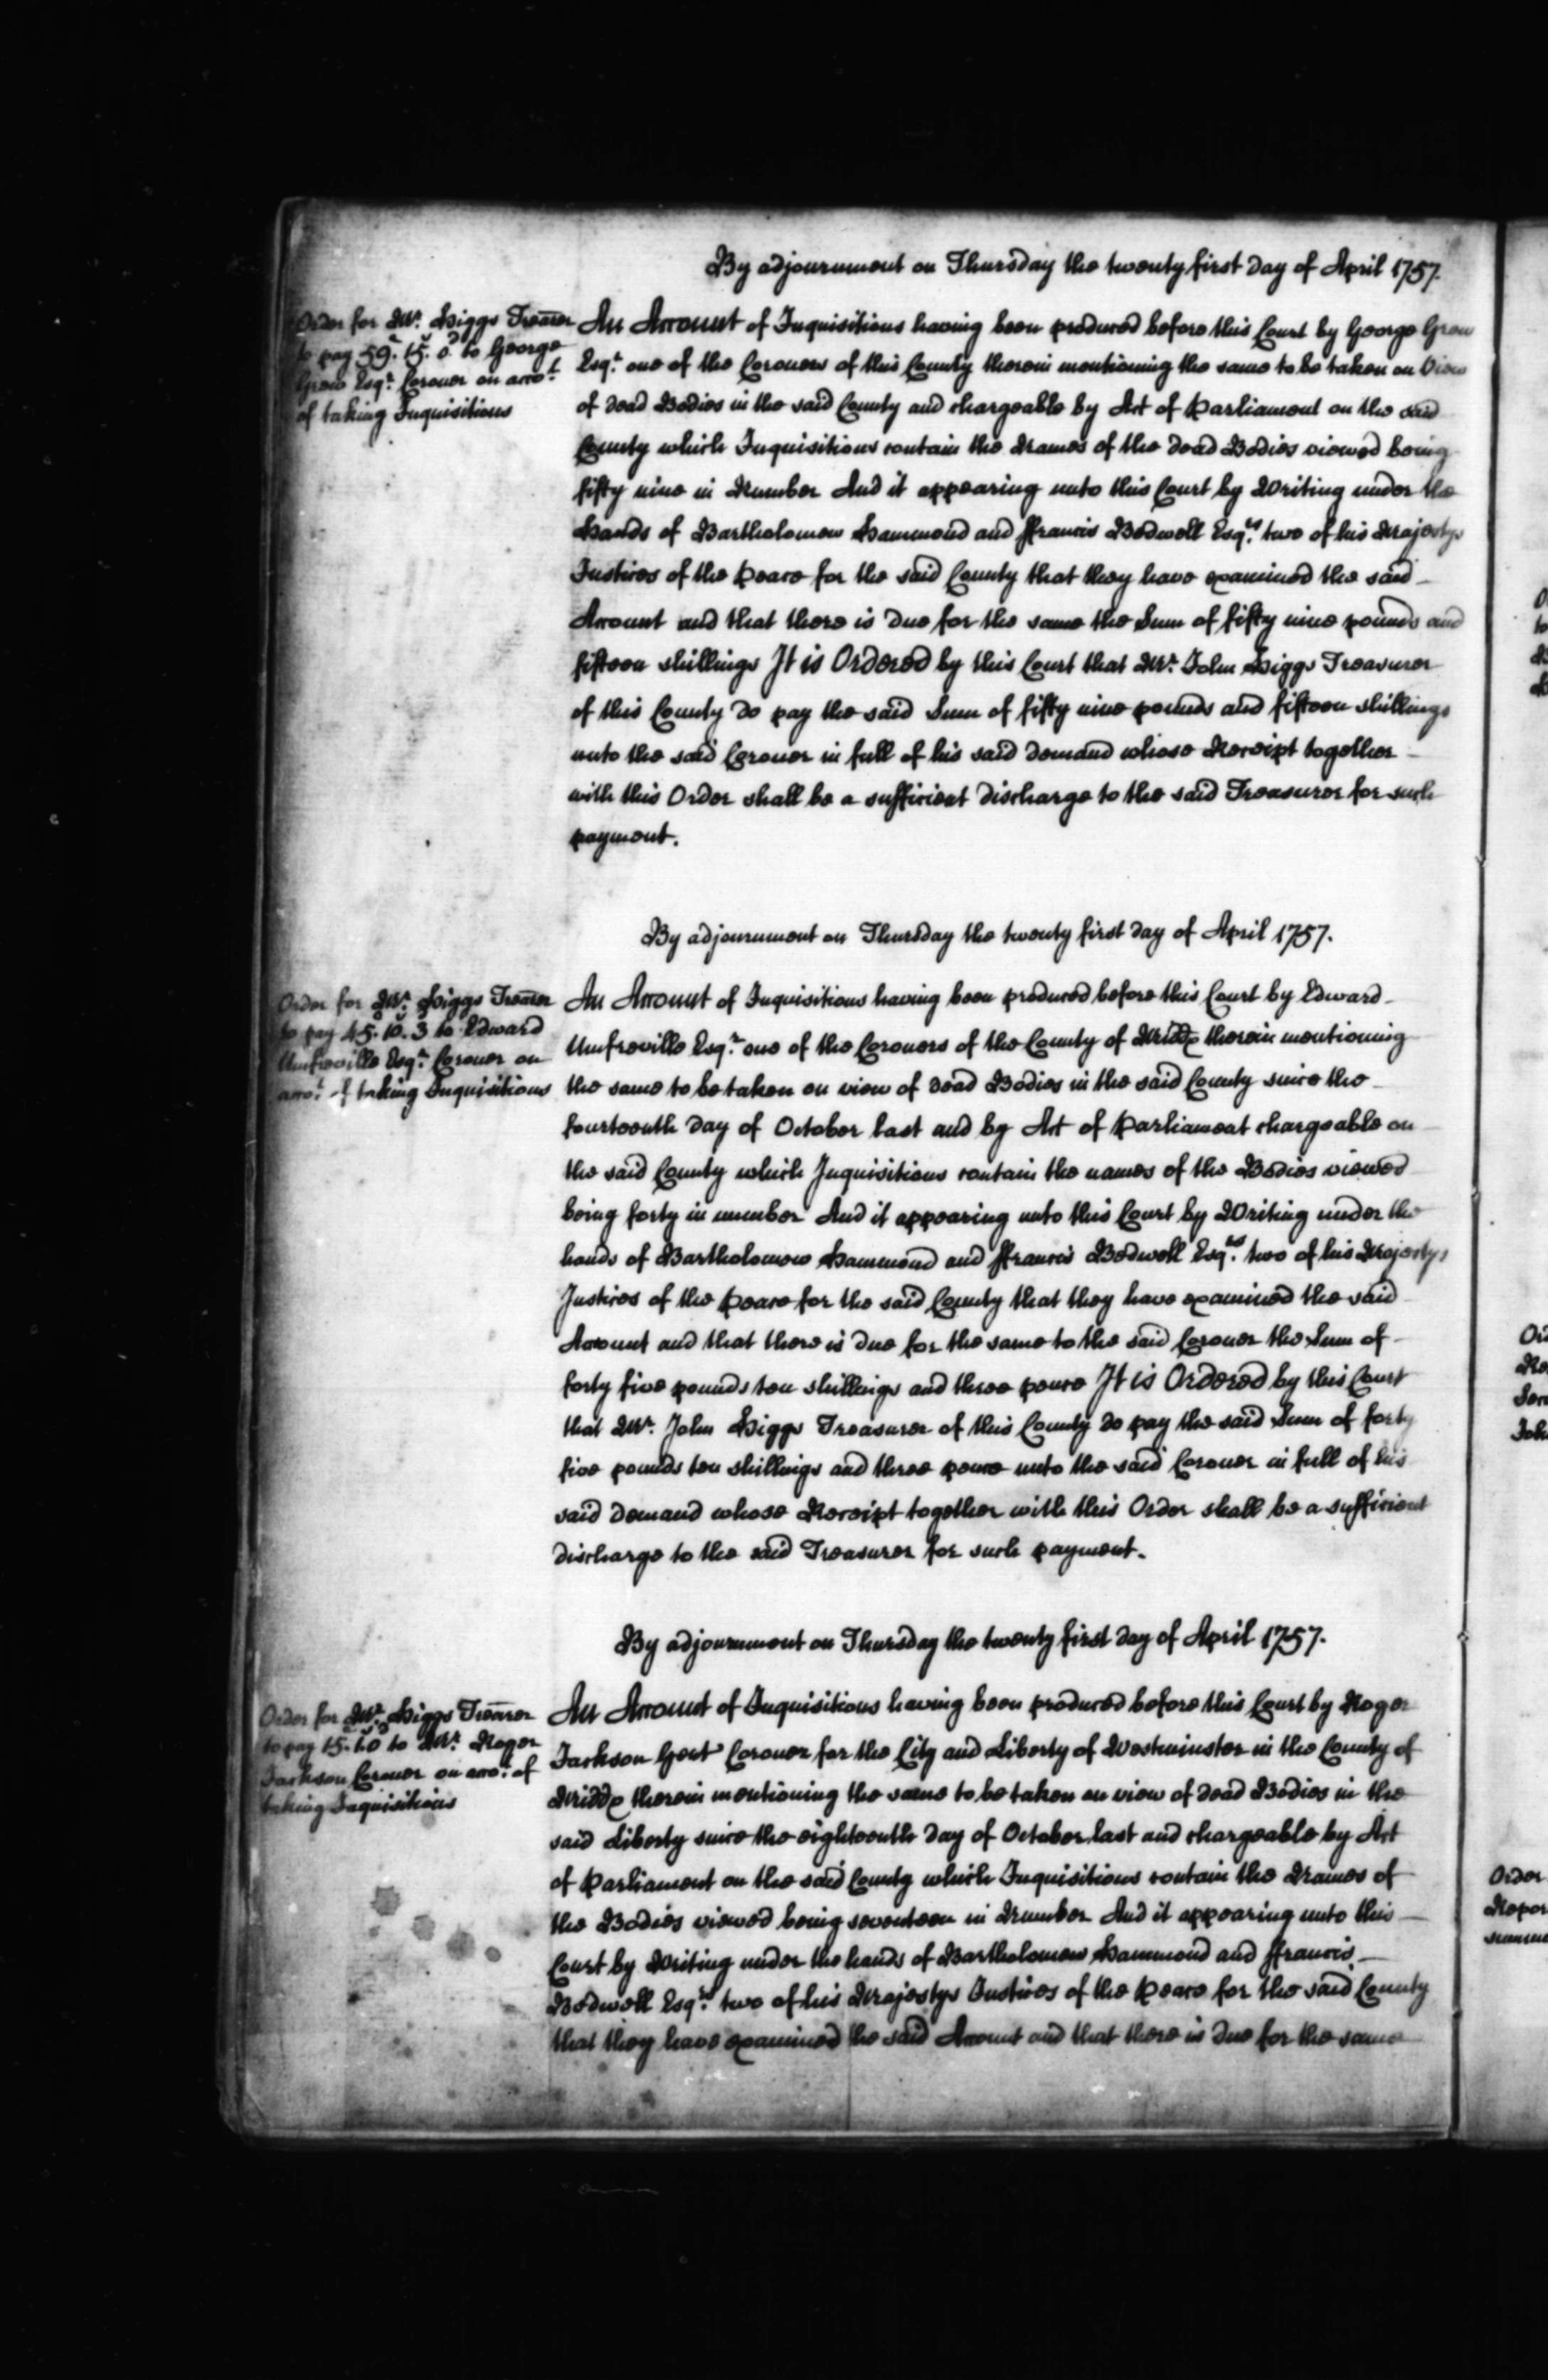 By adjournment on Thursday the twenty first day of April 1757.
Order for Mr. Higgs Trearer
to pay 59.£ 15.s 0.d to George
Grew Esqr. Coroner on acco.t
of taking Inquisitions
An Account of Inquisitions having been produced before this Court by George Grew
Esqr. one of the Coroners of this County therein mentioning the same to be taken on View
of dead Bodies in the said County and chargeable by Act of Parliament on the said
County which Inquisitions contain the Names of the dead Bodies viewed being
fifty nine in Number And it appearing unto this Court by Writing under the
Hands of Bartholomew Hammond and ffrancis Bedwell Esqrs. two of his Majestys
Justices of the Peace for the said County that they have examined the said
Account and that there is due for the same the Sum of fifty nine pounds and
fifteen shillings It is Ordered by this Court that Mr. John Higgs Treasurer
of this County do pay the said Sum of fifty nine pounds and fifteen shillings
unto the said Coroner in full of his said demand whose Receipt together
with this Order shall be a sufficient discharge to the said Treasurer for such
payment.
By adjournment on Thursday the twenty first day of April 1757.
Order for Mr. Higgs Trearer
to pay 45.£ 10.s 3 to Edward
Umfreville Esqr. Coroner on
acco.t of taking Inquisitions
An Account of Inquisitions having been produced before this Court by Edward
Umfreville Esqr. one of the Coroners of the County of Middx therein mentioning
the same to be taken on view of dead Bodies in the said County since the
fourteenth day of October last and by Act of Parliament chargeable on
the said County which Inquisitions contain the names of the Bodies viewed
being forty in number And it appearing unto this Court by Writing under the
hands of Bartholomew Hammond and ffrancis Bedwell Esqrs. two of his Majestys
Justices of the Peace for the said County that they have examined the said
Account and that there is due for the same to the said Coroner the Sum of
forty five pounds ten shillings and three pence It is Ordered by this Court
that Mr. John Higgs Treasurer of this County do pay the said Sum of forty
five pounds ten shillings and three pence unto the said Coroner in full of his
said demand whose Receipt together with this Order shall be a sufficient
discharge to the said Treasurer for such payment.
By adjournment on Thursday the twenty first day of April 1757.
Order for Mr. Higgs Trearer
to pay 15. 1.0 to Mr. Roger
Jackson Coroner on acco.t of
taking Inquisitions
An Account of Inquisitions having been produced before this Court by Roger
Jackson Gent Coroner for the City and Liberty of Westminster in the County of
Middx therein mentioning the same to be taken on view of dead Bodies in the
said Liberty since the eighteenth day of October last and chargeable by Act
of Parliament on the said County which Inquisitions contain the Names of
the Bodies viewed being seventeen in Number And it appearing unto this
Court by Writing under the hands of Bartholomew Hammond and ffrancis
Bedwell Esqrs. two of his Majestys Justices of the Peace for the said County
that they have examined the said Account and that there is due for the same